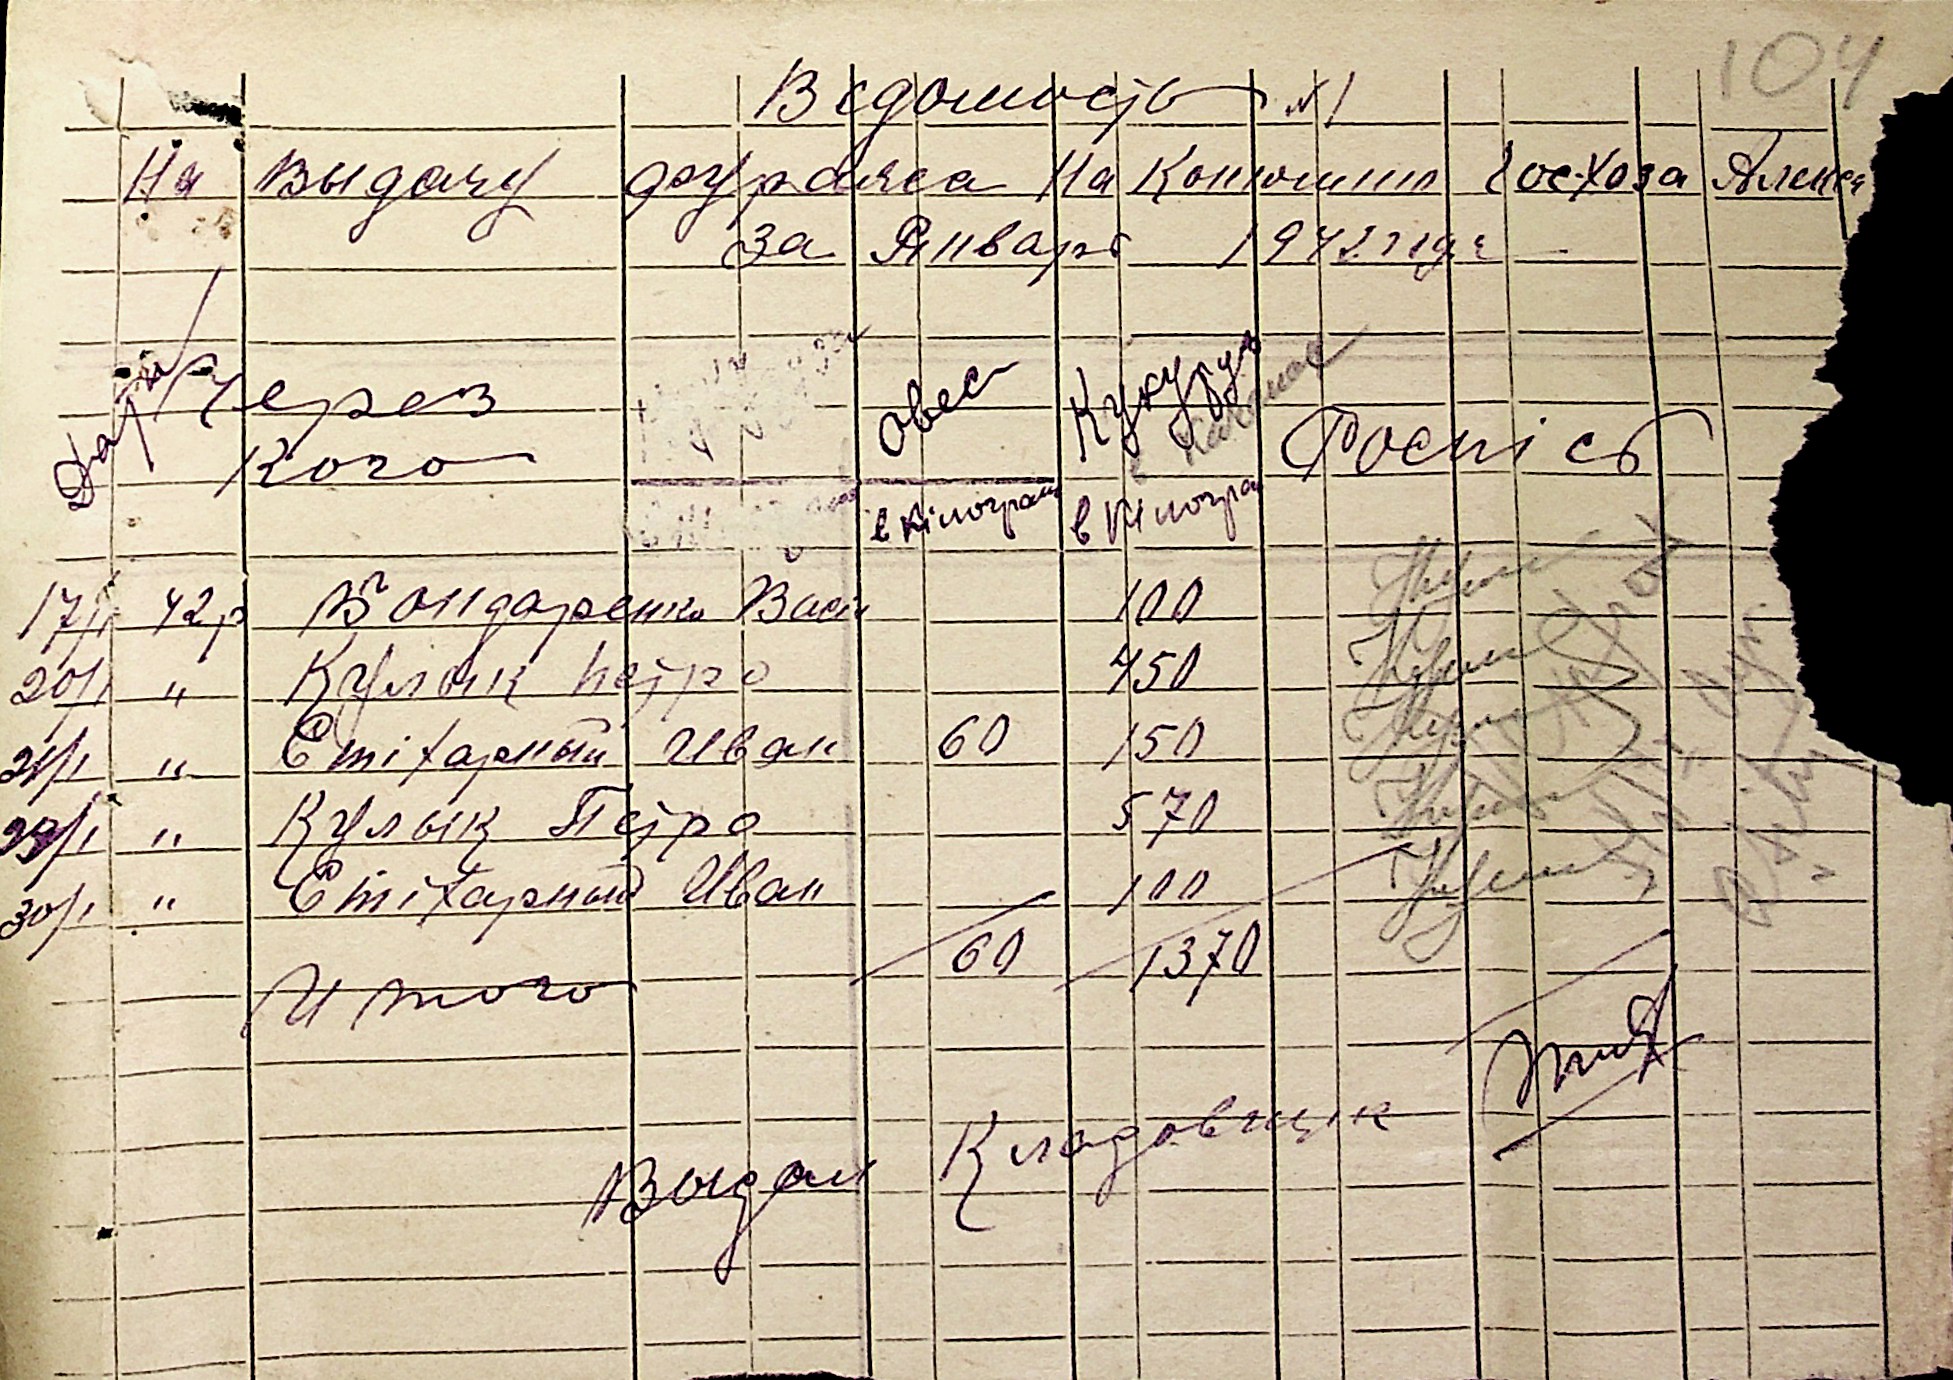 104
Ведомость №1
На Выдачу фуража На Конюшни Госхоза Алекса
За Январь 1942 года
Дата Через Кого овес Кукуруз Роспісь
в кілограм в кілогра
17/I 42р Бондаренко Васи 100
20/I " Кулык Петро 450
21/I " Стіхарный Иван 60 150
29/I " Кулык Петро 570
30/I " Стіхарный Иван 100
Итого 60 1370
Выдал Кладовщик